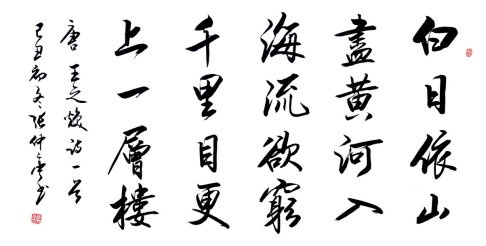 白日依山
盡黄河入
海流欲窮
千里目更
上一層樓
唐 王之焕诗一首
己丑初冬张仲书